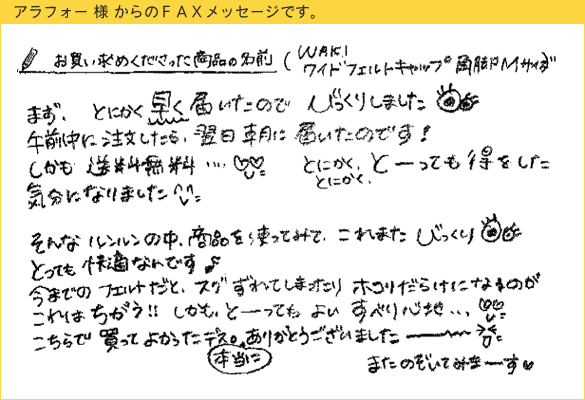 アラフォー 様 からのＦＡＸメッセージです。
お買い求めくださった商品の名前 ( WAKI ワイドフェルトキャップ 角脚用 Mサイズ
まず、とにかく早く届いたので びっくりしました
午前中に注文したら、翌日 朝に届いたのです!
しかも 送料無料 … とにかく、とーっても得をした
とにかく、
気分になりました
そんなルンルンの中、商品を使ってみて、これまた びっくり
とっても 快適なんです♪
今までの フェルトだと、スグ ずれてしまったり ホコリだらけになるのが
これは ちがう!! しかも、とーっても よい すべり心地…
こちらで 買って よかったデス。ありがとうございました
本当に
またのぞいてみまーす♡